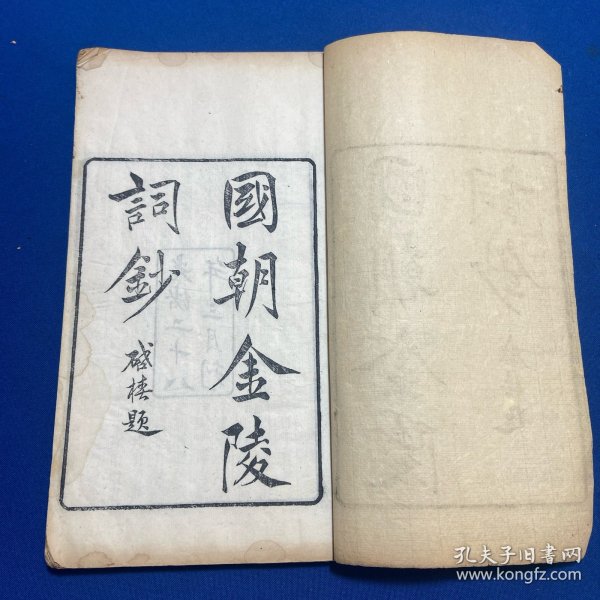 國朝金陵
詞鈔
題
孔夫子旧书网
www.kongfz.com